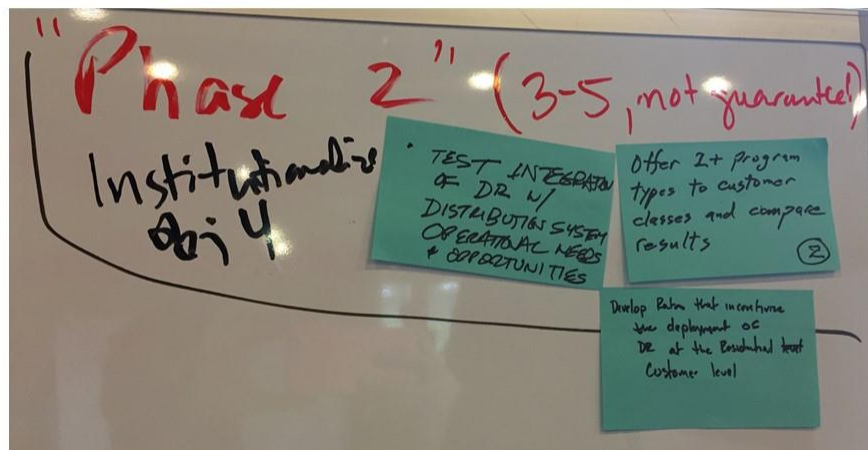 "Phase 2" (3-5, not guarantee!)
Institutionalize
Obj 4
• TEST INTEGRATION
OF DR W/
DISTRIBUTION SYSTEM
OPERATIONAL NEEDS
& OPPORTUNITIES
Offer 2+ program
types to customer
classes and compare
results
2
Develop Rates that incentivize
the deployment of
DR at the Residential level
Customer level